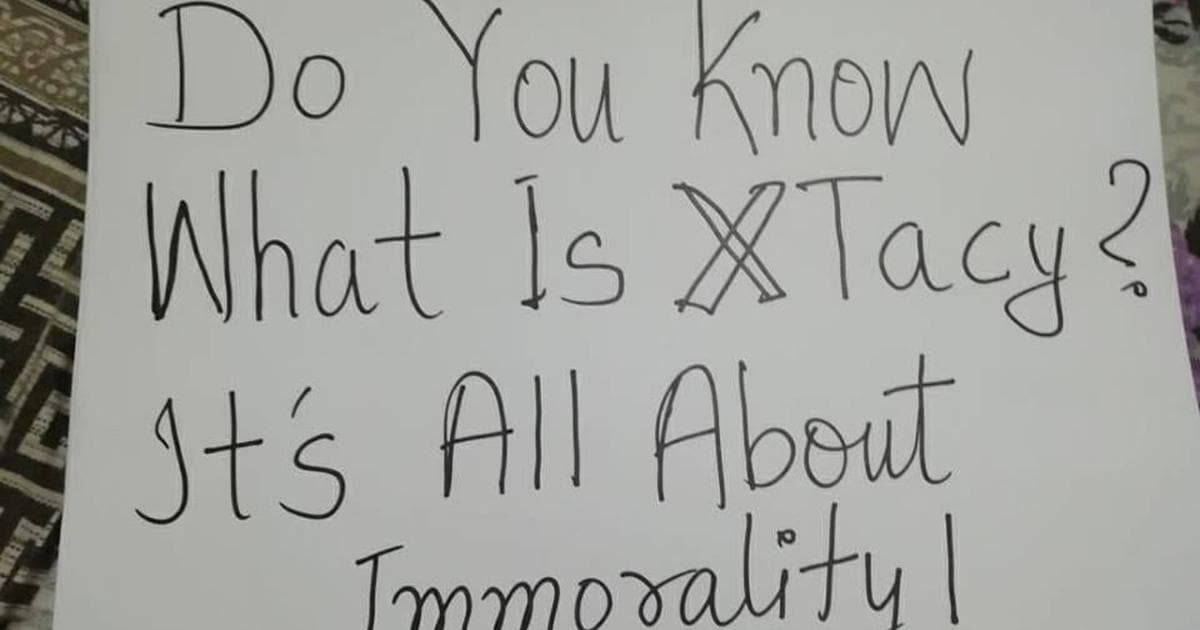 Do You Know
What Is XTacy?
It's All About
Immorality!